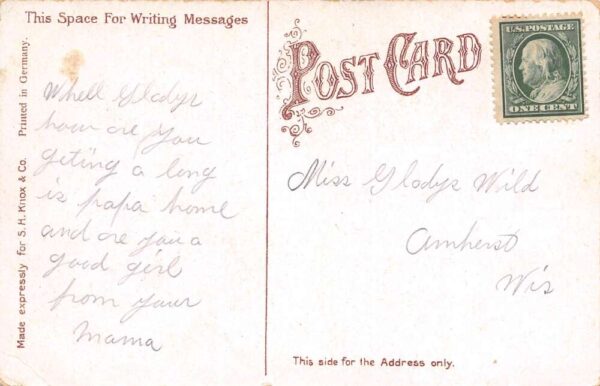 This Space For Writing Messages
POST CARD
U.S. POSTAGE
ONE CENT
Made expressly for S. H. Knox & Co. Printed in Germany.
Whell Gladys
how are you
geting a long
is papa home
and are you a
good girl
from your
mama
Miss Gladys Wild
Amherst
Wis
This side for the Address only.